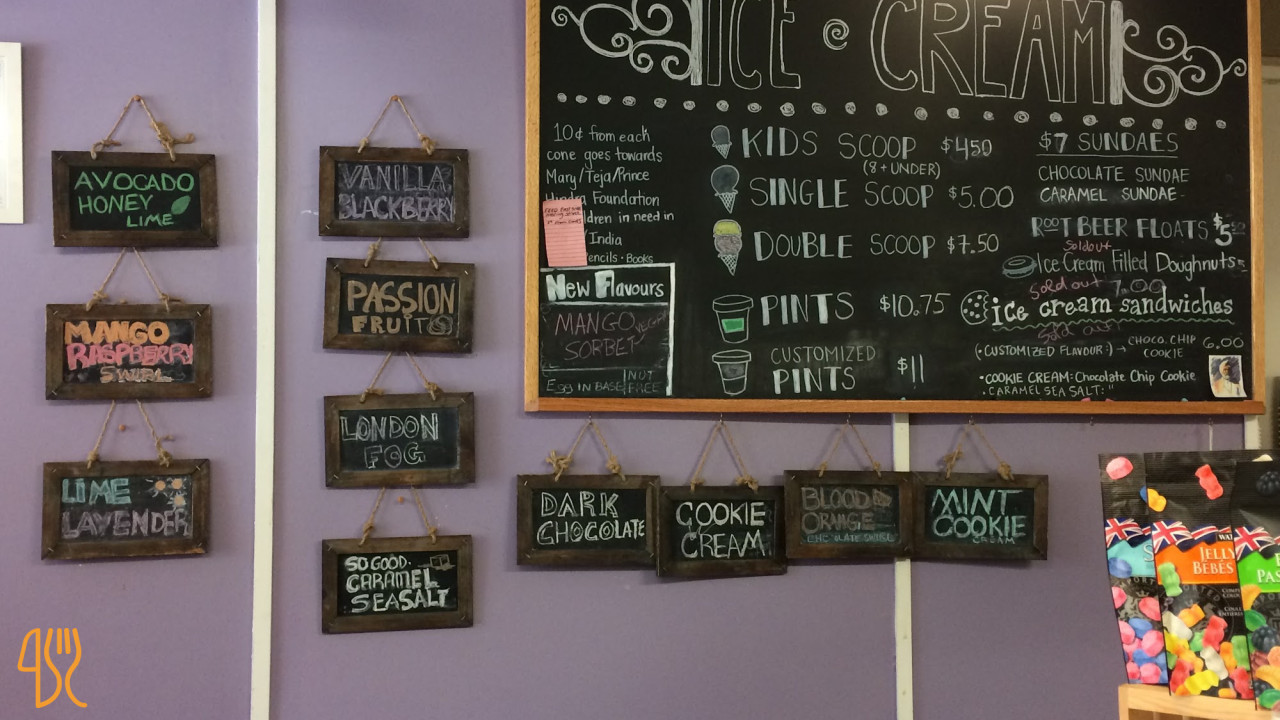 AVOCADO
HONEY
LIME
MANGO
RASPBERRY
SWIRL
LIME
LAVENDER
VANILLA
BLACKBERRY
PASSION
FRUIT
LONDON
FOG
SO GOOD.
CARAMEL
SEASALT
ICE CREAM
10¢ from each
cone goes towards
Mary/Teja/Prince
Foundation
dren in need in
India
encils · Books
New Flavours
MANGO VEGAN
SORBET
EGG IN BASE NUT
FREE
KIDS SCOOP $4.50
(8 + UNDER)
SINGLE SCOOP $5.00
DOUBLE SCOOP $7.50
PINTS $10.75
CUSTOMIZED
PINTS $11
$7 SUNDAES
CHOCOLATE SUNDAE
CARAMEL SUNDAE
ROOT BEER FLOATS $5
Sold out
Ice Cream Filled Doughnuts
Sold out 7.00
ice cream sandwiches
Sold out
(CUSTOMIZED FLAVOUR:) → CHOCO. CHIP 6.00
COOKIE
• COOKIE CREAM: Chocolate Chip Cookie
• CARAMEL SEA SALT: "
DARK
CHOCOLATE
COOKIE
CREAM
BLOOD
ORANGE
CHOCOLATE SWIRL
MINT
COOKIE
CREAM
JELLY
BEBÉS
PAS